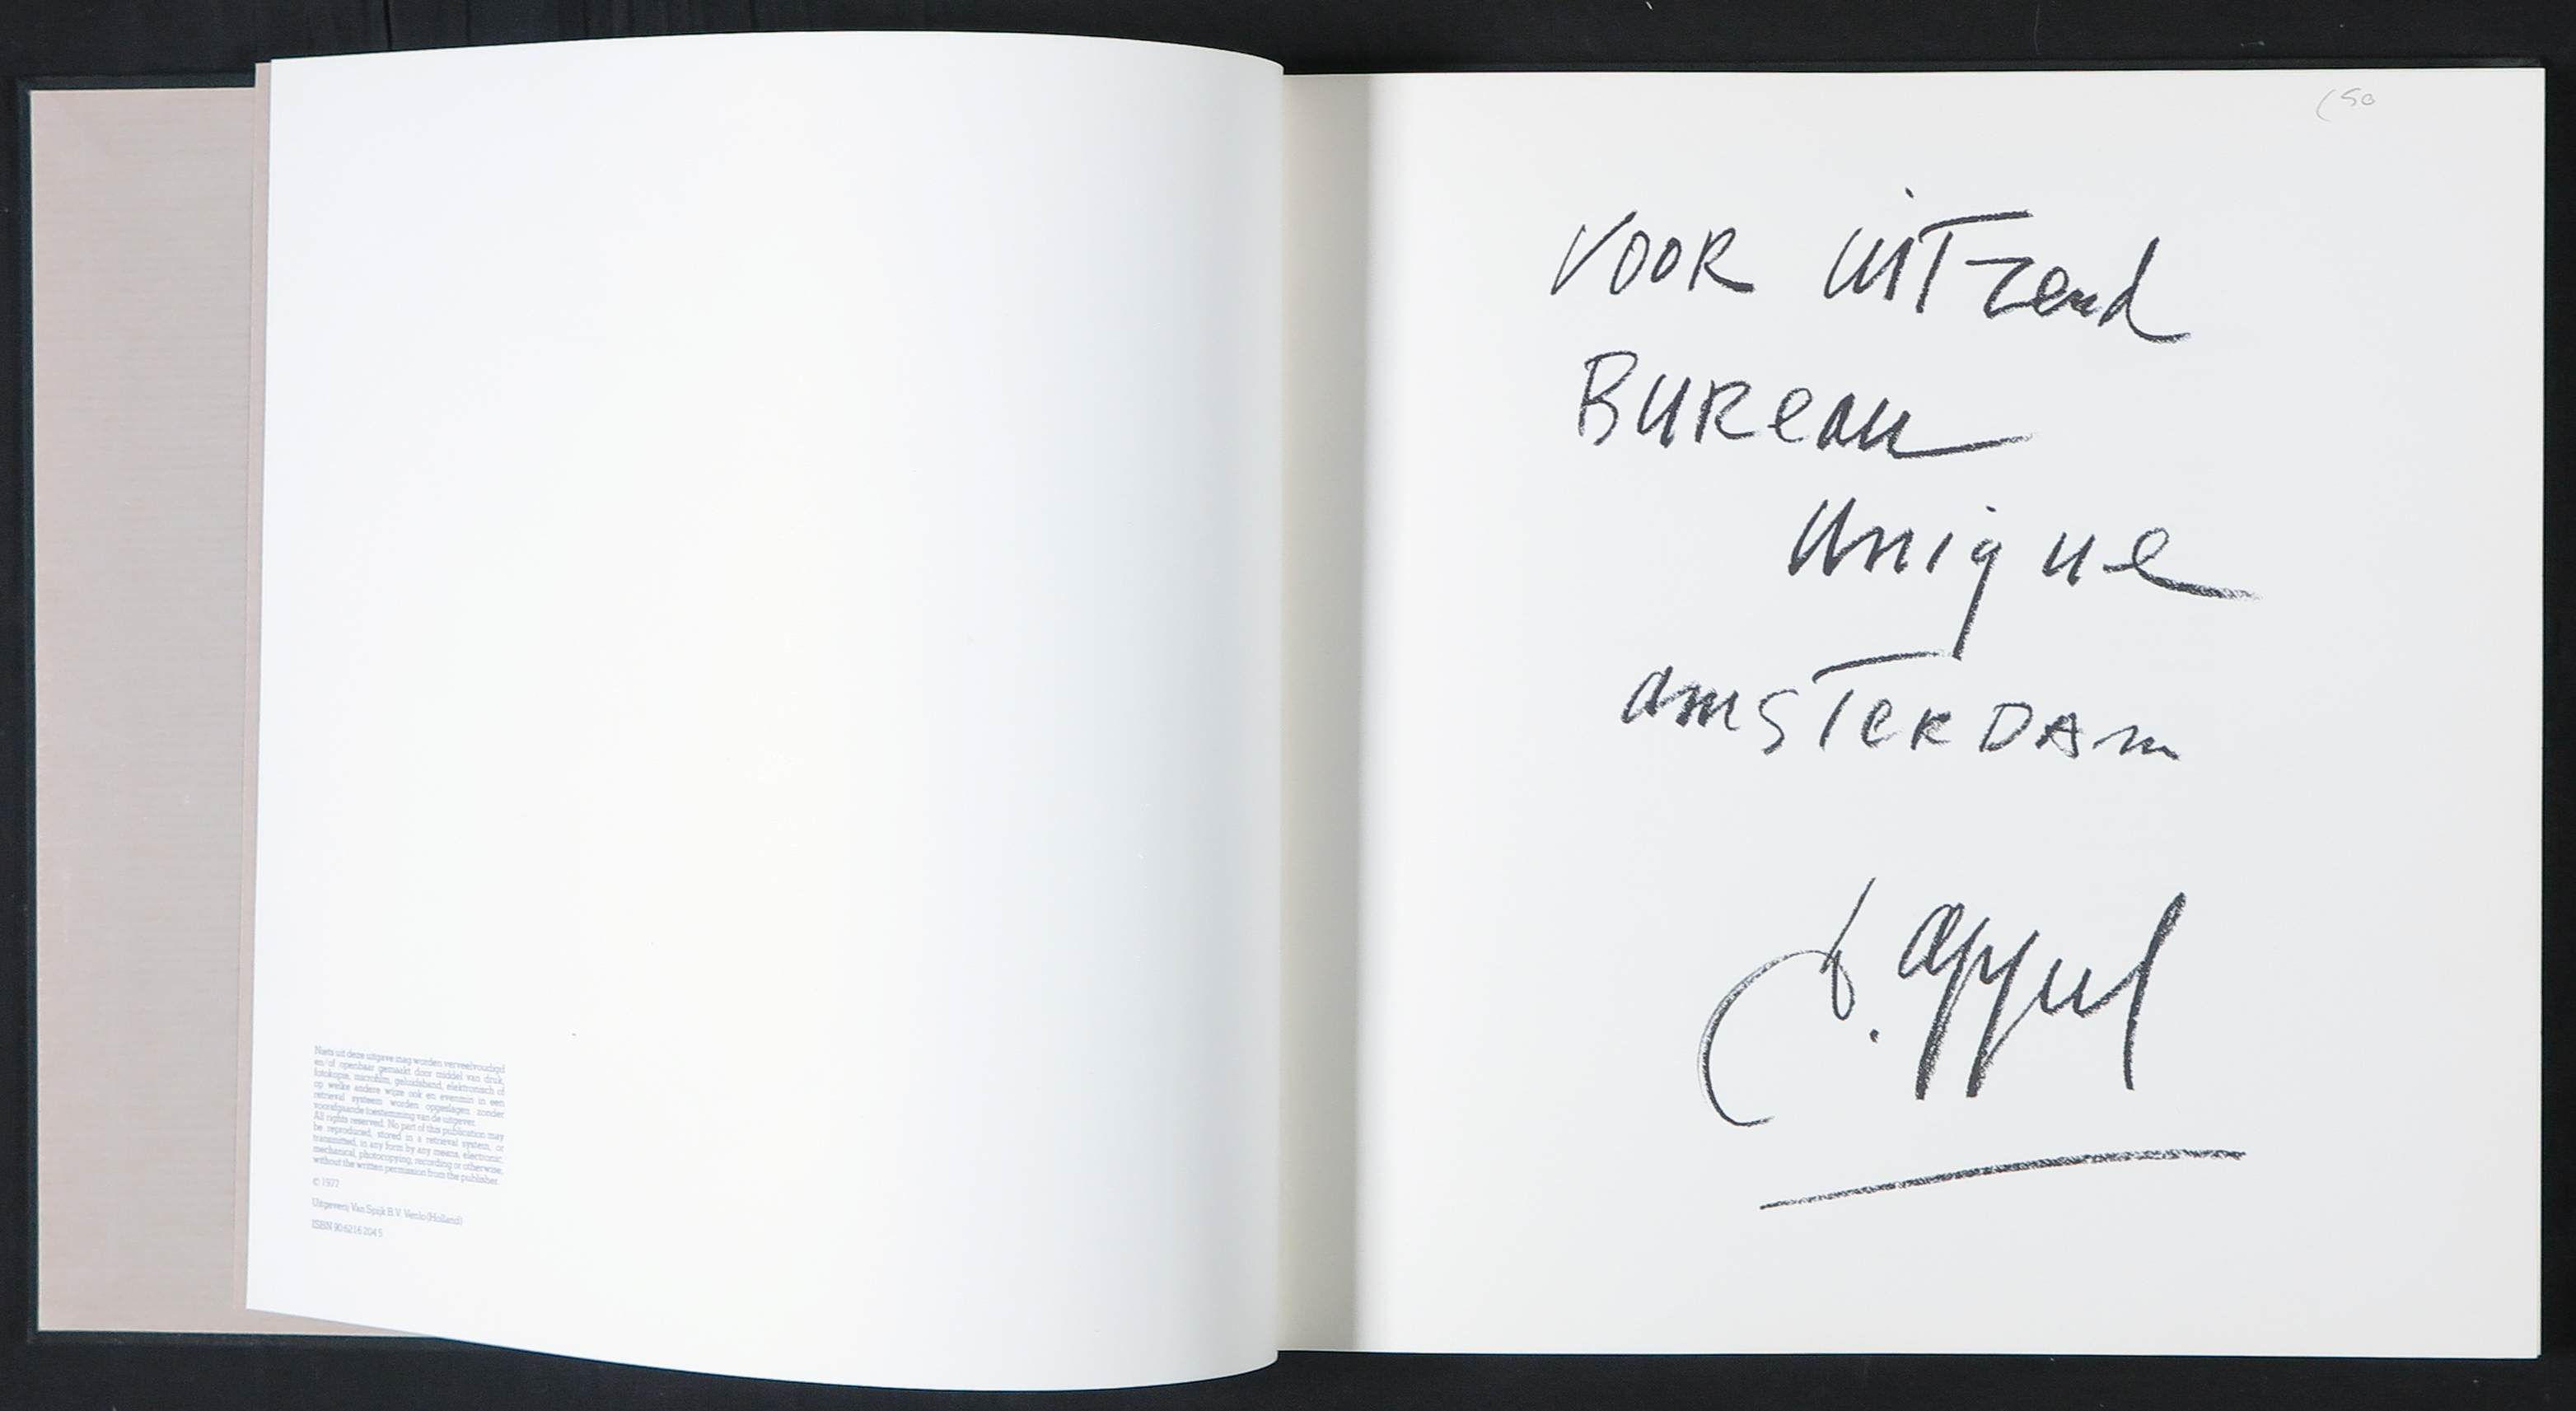 Niets uit deze uitgave mag worden verveelvoudigd
en/of openbaar gemaakt door middel van druk,
fotokopie, microfilm, geluidsband, elektronisch of
op welke andere wijze ook en evenmin in een
retrieval systeem worden opgeslagen zonder
voorafgaande toestemming van de uitgever.
All rights reserved. No part of this publication may
be reproduced, stored in a retrieval system, or
transmitted, in any form by any means, electronic,
mechanical, photocopying, recording or otherwise,
without the written permission from the publisher.
© 1977
Uitgeverij Van Spijk B.V. Venlo (Holland)
ISBN 90 6216 204 5
VOOR UITZend
BUReau
Unique
amSTERDAm
appel